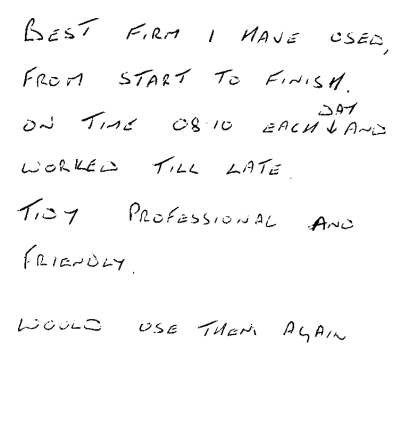 BEST FIRM I HAVE USED,
FROM START TO FINISH.
ON TIME 08.10 EACH DAY AND
WORKED TILL LATE.
TIDY PROFESSIONAL AND
FRIENDLY.
WOULD USE THEM AGAIN